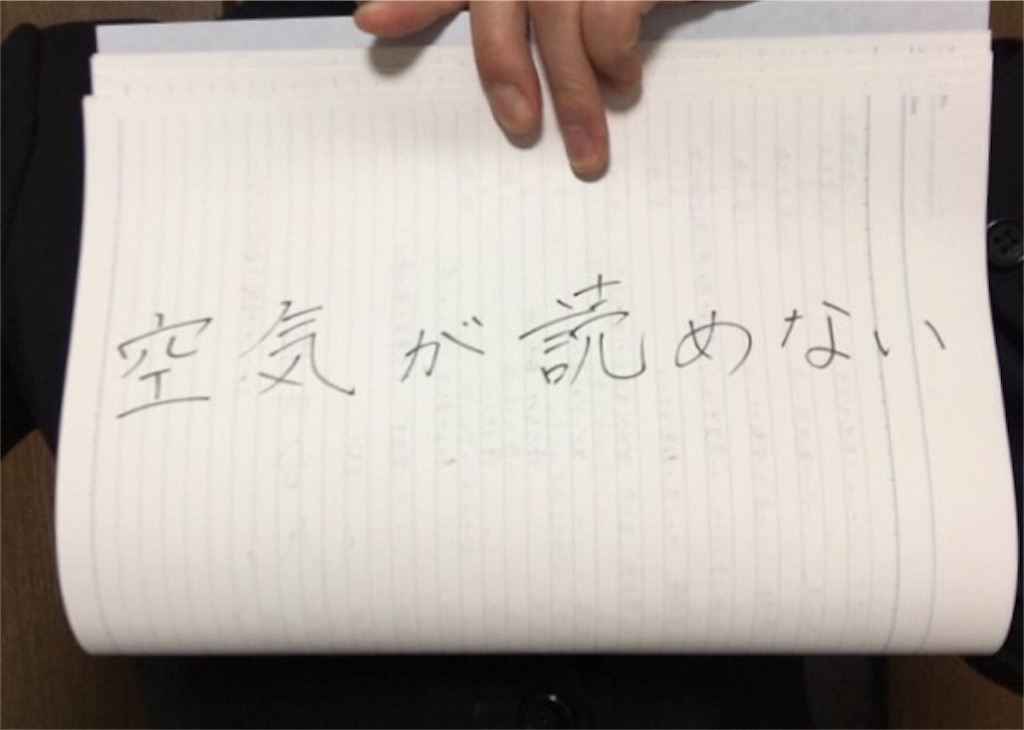 空気が読めない